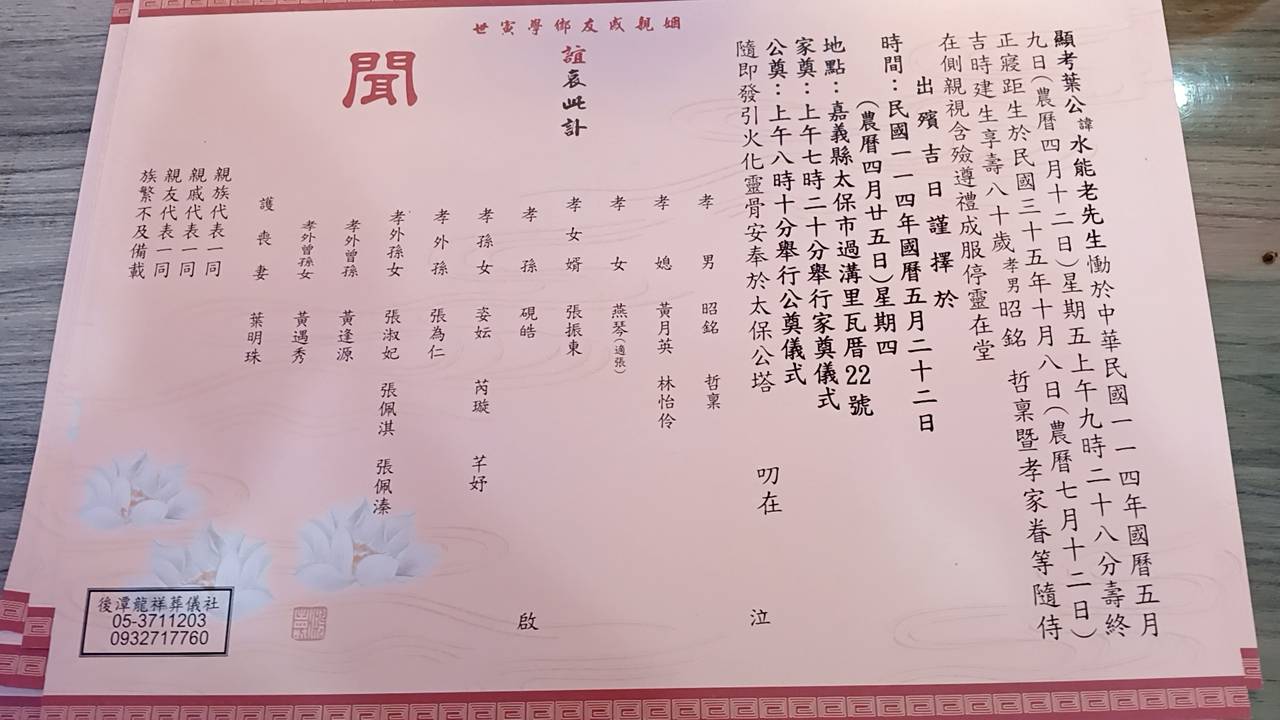 顯考葉公諱水能老先生慟於中華民國一一四年國曆五月
九日(農曆四月十二日)星期五上午九時二十八分壽終
正寢距生於民國三十五年十月八日(農曆七月十二日)
吉時建生享壽八十歲孝男昭銘 哲稟暨孝家眷等隨侍
在側親視含殮遵禮成服停靈在堂
出殯吉日謹擇於
時間:民國一一四年國曆五月二十二日
(農曆四月廿五日)星期四
地點:嘉義縣太保市過溝里瓦厝22號
家奠:上午七時二十分舉行家奠儀式
公奠:上午八時十分舉行公奠儀式
隨即發引火化靈骨安奉於太保公塔
叨在 泣
孝男 昭銘 哲稟
孝媳 黃月英 林怡伶
孝女 燕琴(適張)
孝女婿 張振東
孝孫 硯皓
孝孫女 姿妘 芮璇 芊妤
孝外孫 張為仁
孝外孫女 張淑妃 張佩淇 張佩溱
孝外曾孫 黃逢源
孝外曾孫女 黃遇秀
護喪妻 葉明珠
啟
親族代表一同
親戚代表一同
親友代表一同
族繁不及備載
世寅學鄉友戚親姻
誼哀此訃
聞
後潭龍祥葬儀社
05-3711203
0932717760